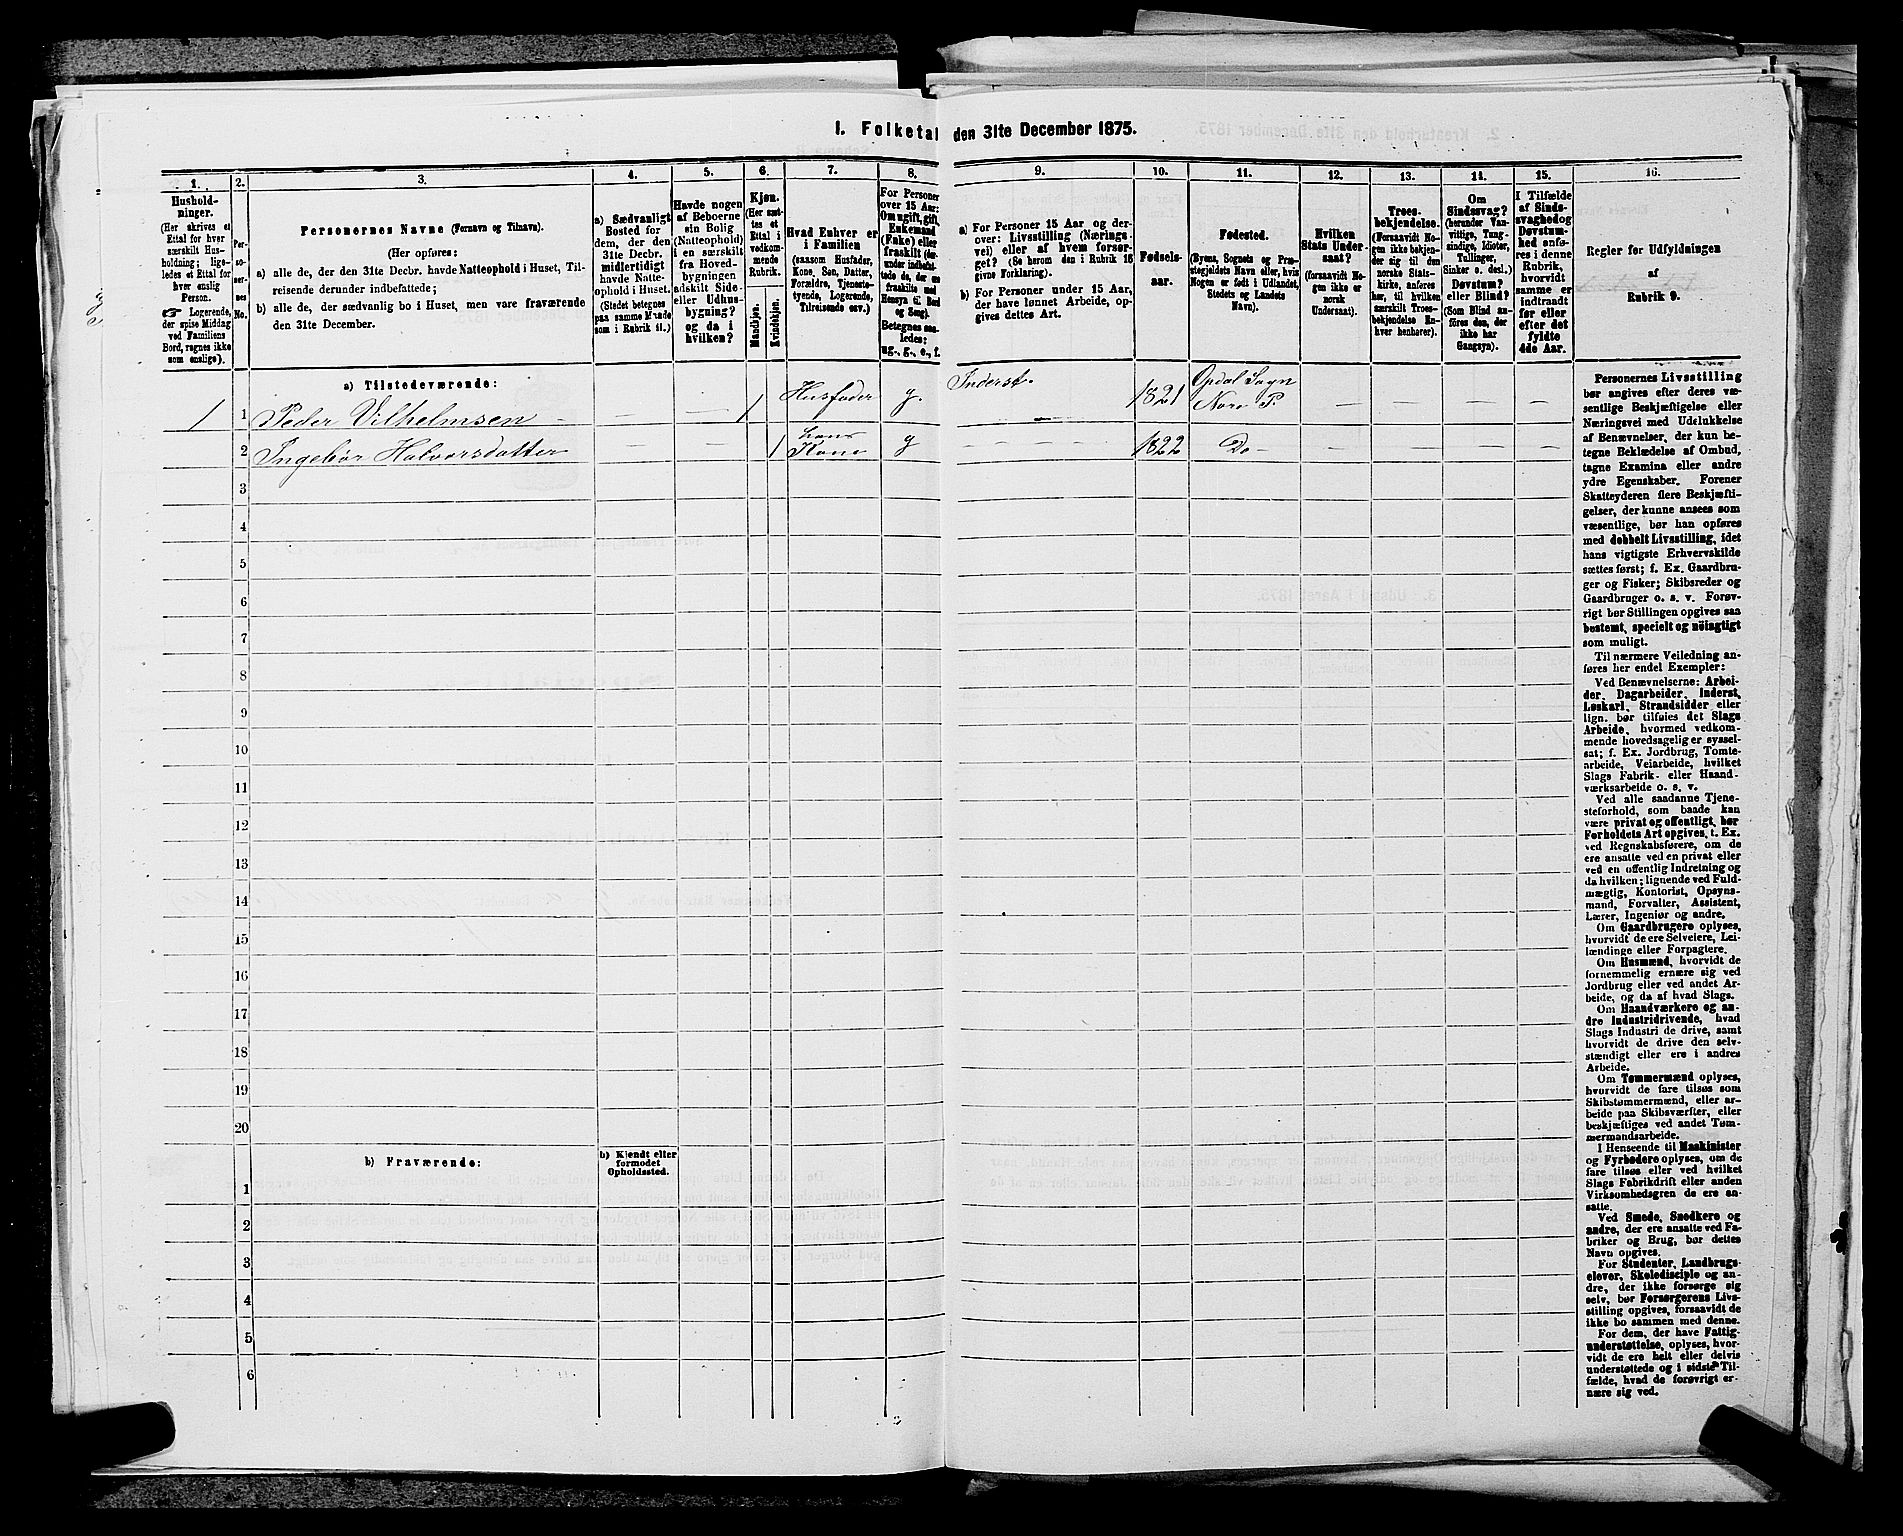 1. Folketal den 31te December 1875.
1.
2.
3.
4.
5.
6.
7.
8.
9.
10.
11.
12.
13.
14.
15.
16.
Hushold-
ninger.
(Her skrives et
Ettal for hver
særskilt Hus-
holdning; lige-
ledes et Ettal for
hver enslig
Person.
☛ Logerende,
der spise Middag
ved Familiens
Bord, regnes ikke
som enslige).
Per-
so-
ner-
nes
No.
Personernes Navne (Fornavn og Tilnavn).
(Her opføres:
a) alle de, der den 31te Decbr. havde Natteophold i Huset, Til-
reisende derunder indbefattede;
b) alle de, der sædvanlig bo i Huset, men vare fraværende
den 31te December.
a) Sædvanligt
Bosted for
dem, der den
31te Decbr.
midlertidigt
havde Natte-
ophold i Huset.
(Stedet betegnes
paa samme Maade
som i Rubrik 11.)
Havde nogen
af Beboerne
sin Bolig
(Natteophold)
i en særskilt
fra Hoved-
bygningen
adskilt Side-
eller Udhus-
bygning?
og da i
hvilken?
Kjøn.
(Her sæt-
tes et
Ettal i
vedkom-
mende
Rubrik.
Mandkjøn.
Kvindekjøn.
Hvad Enhver er
i Familien
(saasom Husfader,
Kone, Søn, Datter,
Forældre, Tjeneste-
tyende, Logerende,
Tilreisende osv.)
For Personer
over 15 Aar:
Om ugift, gift,
Enkemand
(Enke) eller
fraskilt (her-
under indbefat-
tede de, der ere
fraskilte med
Hensyn til Bord
og Seng).
Betegnes saa-
ledes:
ug., g., e., f.
a) For Personer 15 Aar og der-
over: Livsstilling (Nærings-
vei) eller af hvem forsør-
get? (Se herom den i Rubrik 16
givne Forklaring).
b) For Personer under 15 Aar,
der have lønnet Arbeide, op-
gives dettes Art.
Fødsels-
aar.
Fødested.
(Byens, Sognets og Præ-
stegjeldets Navn eller, hvis
Nogen er født i Udlandet,
Stedets og Landets
Navn).
Hvilken
Stats Under-
saat?
(forsaavidt No-
gen ikke er
norsk
Undersaat).
Troes-
bekjendelse.
(Forsaavidt No-
gen ikke bekjen-
der sig til den
norske Stats-
kirke, anføres
her, til hvilken
særskilt Troes-
bekjendelse En-
hver henhører).
Om
Sindssvag?
(herunder Van-
vittige, Tung-
sindige, Idioter,
Tullinger,
Sinker o. desl.)
Døvstum?
eller Blind?
(Som Blind an-
føres den, der
ikke har
Gangsyn).
I Tilfælde
af Sinds-
svaghed og
Døvstum-
hed anfø-
res i denne
Rubrik,
hvorvidt
samme er
indtraadt
før eller
efter det
fyldte
4de Aar.
Regler for Udfyldningen
af
Rubrik 9.
a) Tilstedeværende:
1 1 Peder Vilhelmsen – – – 1 Husfader g. Inderst. 1821 Opdal Sogn
Nore P. – – – –
2 Ingebór Halvorsdatter – – 1 hans
Kone g – – – – 1822 Do – – – – –
3
4
5
6
7
8
9
10
11
12
13
14
15
16
17
18
19
20
b) Fraværende:
b) Kjendt eller
formodet
Opholdssted.
1
2
3
4
5
6
Personernes Livsstilling
bør angives efter deres væ-
sentlige Beskjæftigelse eller
Næringsvei med Udelukkelse
af Benævnelser, der kun be-
tegne Beklædelse af Ombud,
tagne Examina eller andre
ydre Egenskaber. Forener
Skatteyderen flere Beskjæfti-
gelser, der kunne ansees som
væsentlige, bør han opføres
med dobbelt Livsstilling, idet
hans vigtigste Erhvervskilde
sættes først; f. Ex. Gaardbru-
ger og Fisker; Skibsreder og
Gaardbruger o. s. v. Forøv-
rigt bør Stillingen opgives saa
bestemt, specielt og nöiagtigt
som muligt.
Til nærmere Veiledning an-
føres her endel Exempler:
Ved Benævnelserne: Arbei-
der, Dagarbeider, Inderst,
Løskarl, Strandsidder eller
lign. bør tilføies det Slags
Arbeide, hvormed vedkom-
mende hovedsagelig er syssel-
sat; f. Ex. Jordbrug, Tomte-
arbeide, Veiarbeide, hvilket
Slags Fabrik- eller Haand-
værksarbeide o. s. v.
Ved alle saadanne Tjene-
steforhold, som baade kan
være privat og offentligt, bør
Forholdets Art opgives, t. Ex.
ved Regnskabsførere, om de
ere ansatte ved en privat eller
ved en offentlig Indretning og
da hvilken; lignende ved Fuld-
mægtig, Kontorist, Opsyns-
mand, Forvalter, Assistent,
Lærer, Ingeniør og andre.
Om Gaardbrugere oplyses,
hvorvidt de ere Selveiere, Lei-
lændinge eller Forpagtere.
Om Husmænd, hvorvidt de
fornemmelig ernære sig ved
Jordbrug eller ved andet Ar-
beide, og da af hvad Slags.
Om Haandværkere og an-
dre Industridrivende, hvad
Slags Industri de drive, samt
hvorvidt de drive den selv-
stændigt eller ere i andres
Arbeide.
Om Tømmermænd oplyses,
hvorvidt de fare tilsøs som
Skibstømmermænd, eller ar-
beide paa Skibsværfter, eller
beskjæftiges ved andet Tøm-
mermandsarbeide.
I Henseende til Maskinister
og Fyrbødere oplyses, om de
fare tilsøs eller ved hvilket
Slags Fabrikdrift eller anden
Virksomhedsgren de ere an-
satte.
Ved Smede, Snedkere og
andre, der ere ansatte ved Fa-
briker og Brug, bør dettes
Navn opgives.
For Studenter, Landbrugs-
elever, Skoledisciple og an-
dre, der ikke forsørge sig
selv, bør Forsørgerens Livs-
stilling opgives, forsaavidt de
ikke bo sammen med denne.
For dem, der have Fattig-
understøttelse, oplyses, hvor-
vidt de ere helt eller delvis
understøttede og i sidste Til-
fælde, hvad de forøvrigt er-
nære sig ved.